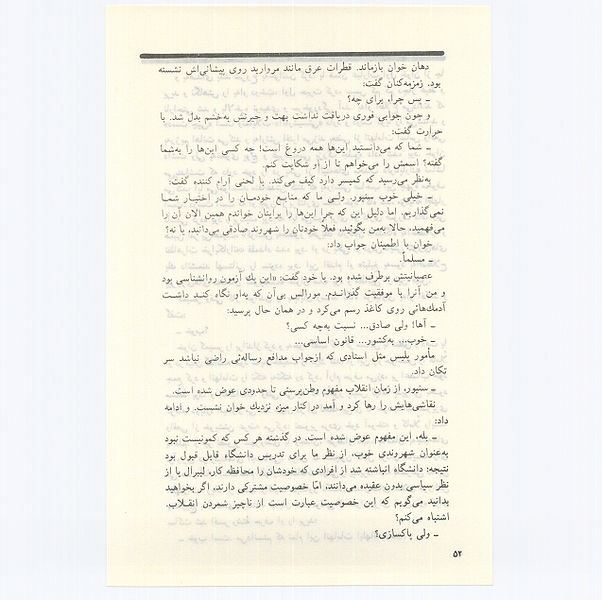 دهان خوان بازماند. قطرات عرق مانند مروارید روی پیشانی‌اش نشسته
بود. زمزمه‌کنان گفت:
ـ پس چرا، برای چه؟
و چون جوابی فوری دریافت نداشت بهت و حیرتش به‌خشم بدل شد. با
حرارت گفت:
ـ شما که می‌دانستید این‌ها همه دروغ است! چه کسی این‌ها را به‌شما
گفته؟ اسمش را می‌خواهم تا از او شکایت کنم.
به‌نظر می‌رسید که کمیسر دارد کیف می‌کند. با لحنی آرام کننده گفت:
ـ خیلی خوب سنیور. ولی ما که منابع خودمان را در اختیار شما
نمی‌گذاریم. اما دلیل این که چرا این‌ها را برایتان خواندم همین الان آن را
می‌فهمید. حالا به‌من بگوئید، فعلاً خودتان را شهروند صادقی می‌دانید، یا نه؟
خوان با اطمینان جواب داد:
ـ مسلماً.
عصبانیتش برطرف شده بود. با خود گفت: «این یك آزمون روانشناسی بود
و من آنرا با موفقیت گذراندم. مورالس بی‌آن که به‌او نگاه کند داشت
آدمك‌هائی روی کاغذ رسم می‌کرد و در همان حال پرسید:
ـ آها! ولی صادق... نسبت به‌چه کسی؟
ـ خوب... به‌کشور... قانون اساسی...
مأمور پلیس مثل استادی که ازجواب مدافع رساله‌ئی راضی نباشد سر
تکان داد.
ـ سنیور، از زمان انقلاب مفهوم وطن‌پرستی تا حدودی عوض شده است.
نقاشی‌هایش را رها کرد و آمد در کنار میز، نزدیك خوان نشست. و ادامه
داد:
ـ بله، این مفهوم عوض شده است. در گذشته هر کس که کمونیست نبود
به‌عنوان شهروندی خوب، از نظر ما برای تدریس دانشگاه قابل قبول بود
نتیجه: دانشگاه انباشته شد از افرادی که خودشان را محافظه کار، لیبرال یا از
نظر سیاسی بدون عقیده می‌دانند، امّا خصوصیت مشترکی دارند، اگر بخواهید
بدانید می‌گویم که این خصوصیت عبارت است از ناچیز شمردن انقلاب.
اشتباه می‌کنم؟
ـ ولی پاکسازی؟
۵۲